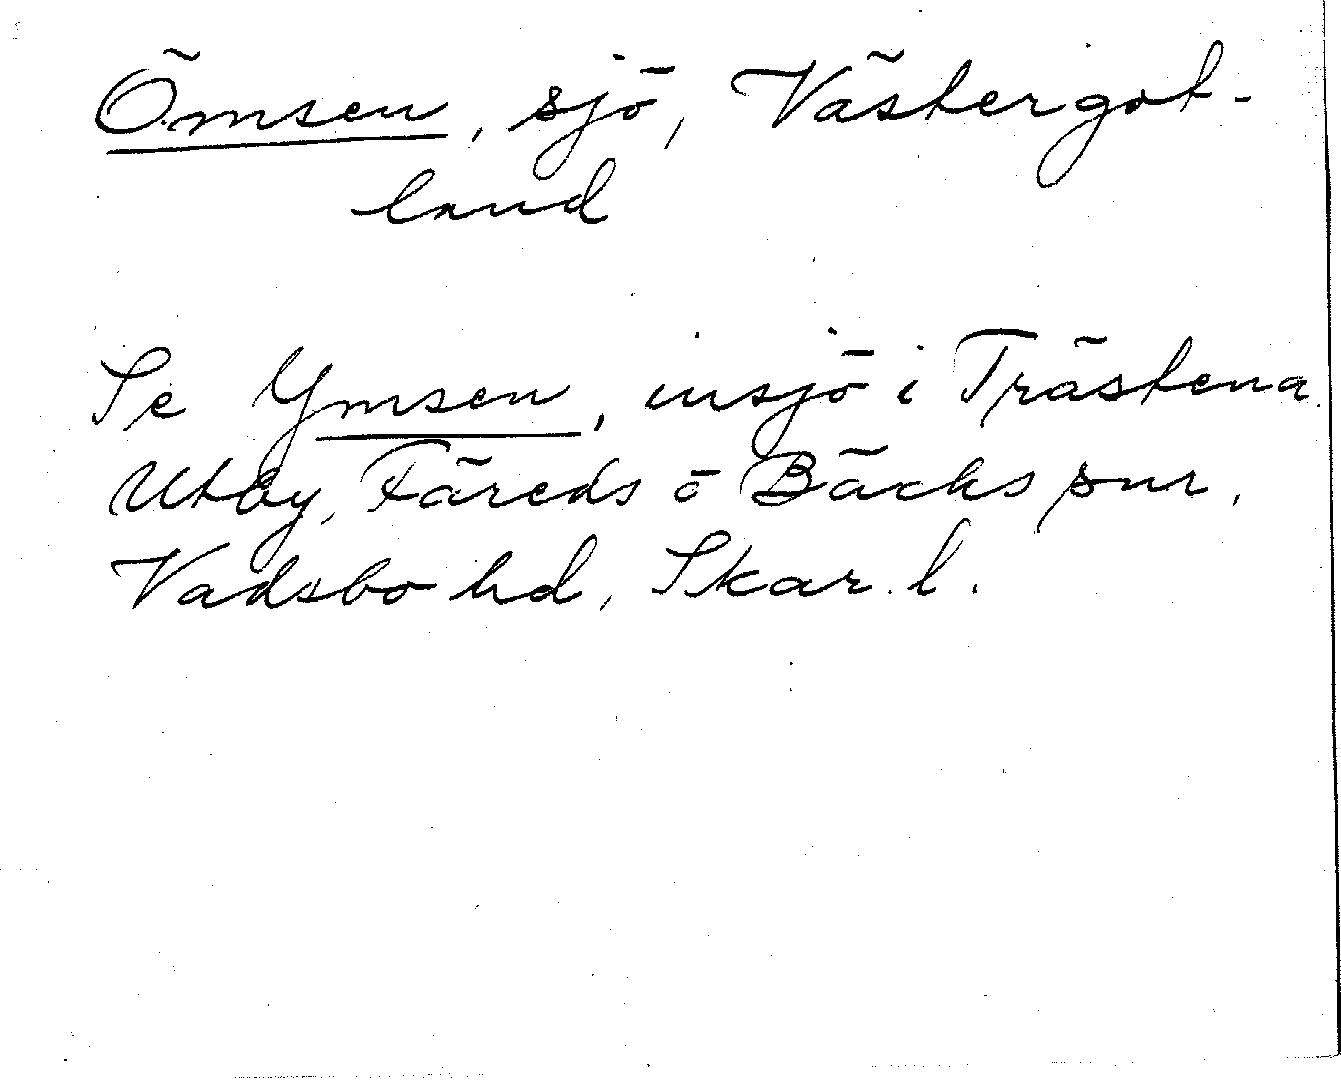 Ömsen, sjö, Västergöt-
land
Se Ymsen, insjö i Trästena
Utby, Färeds ö Bäcks snr,
Vadsbo hd, Skar. l.